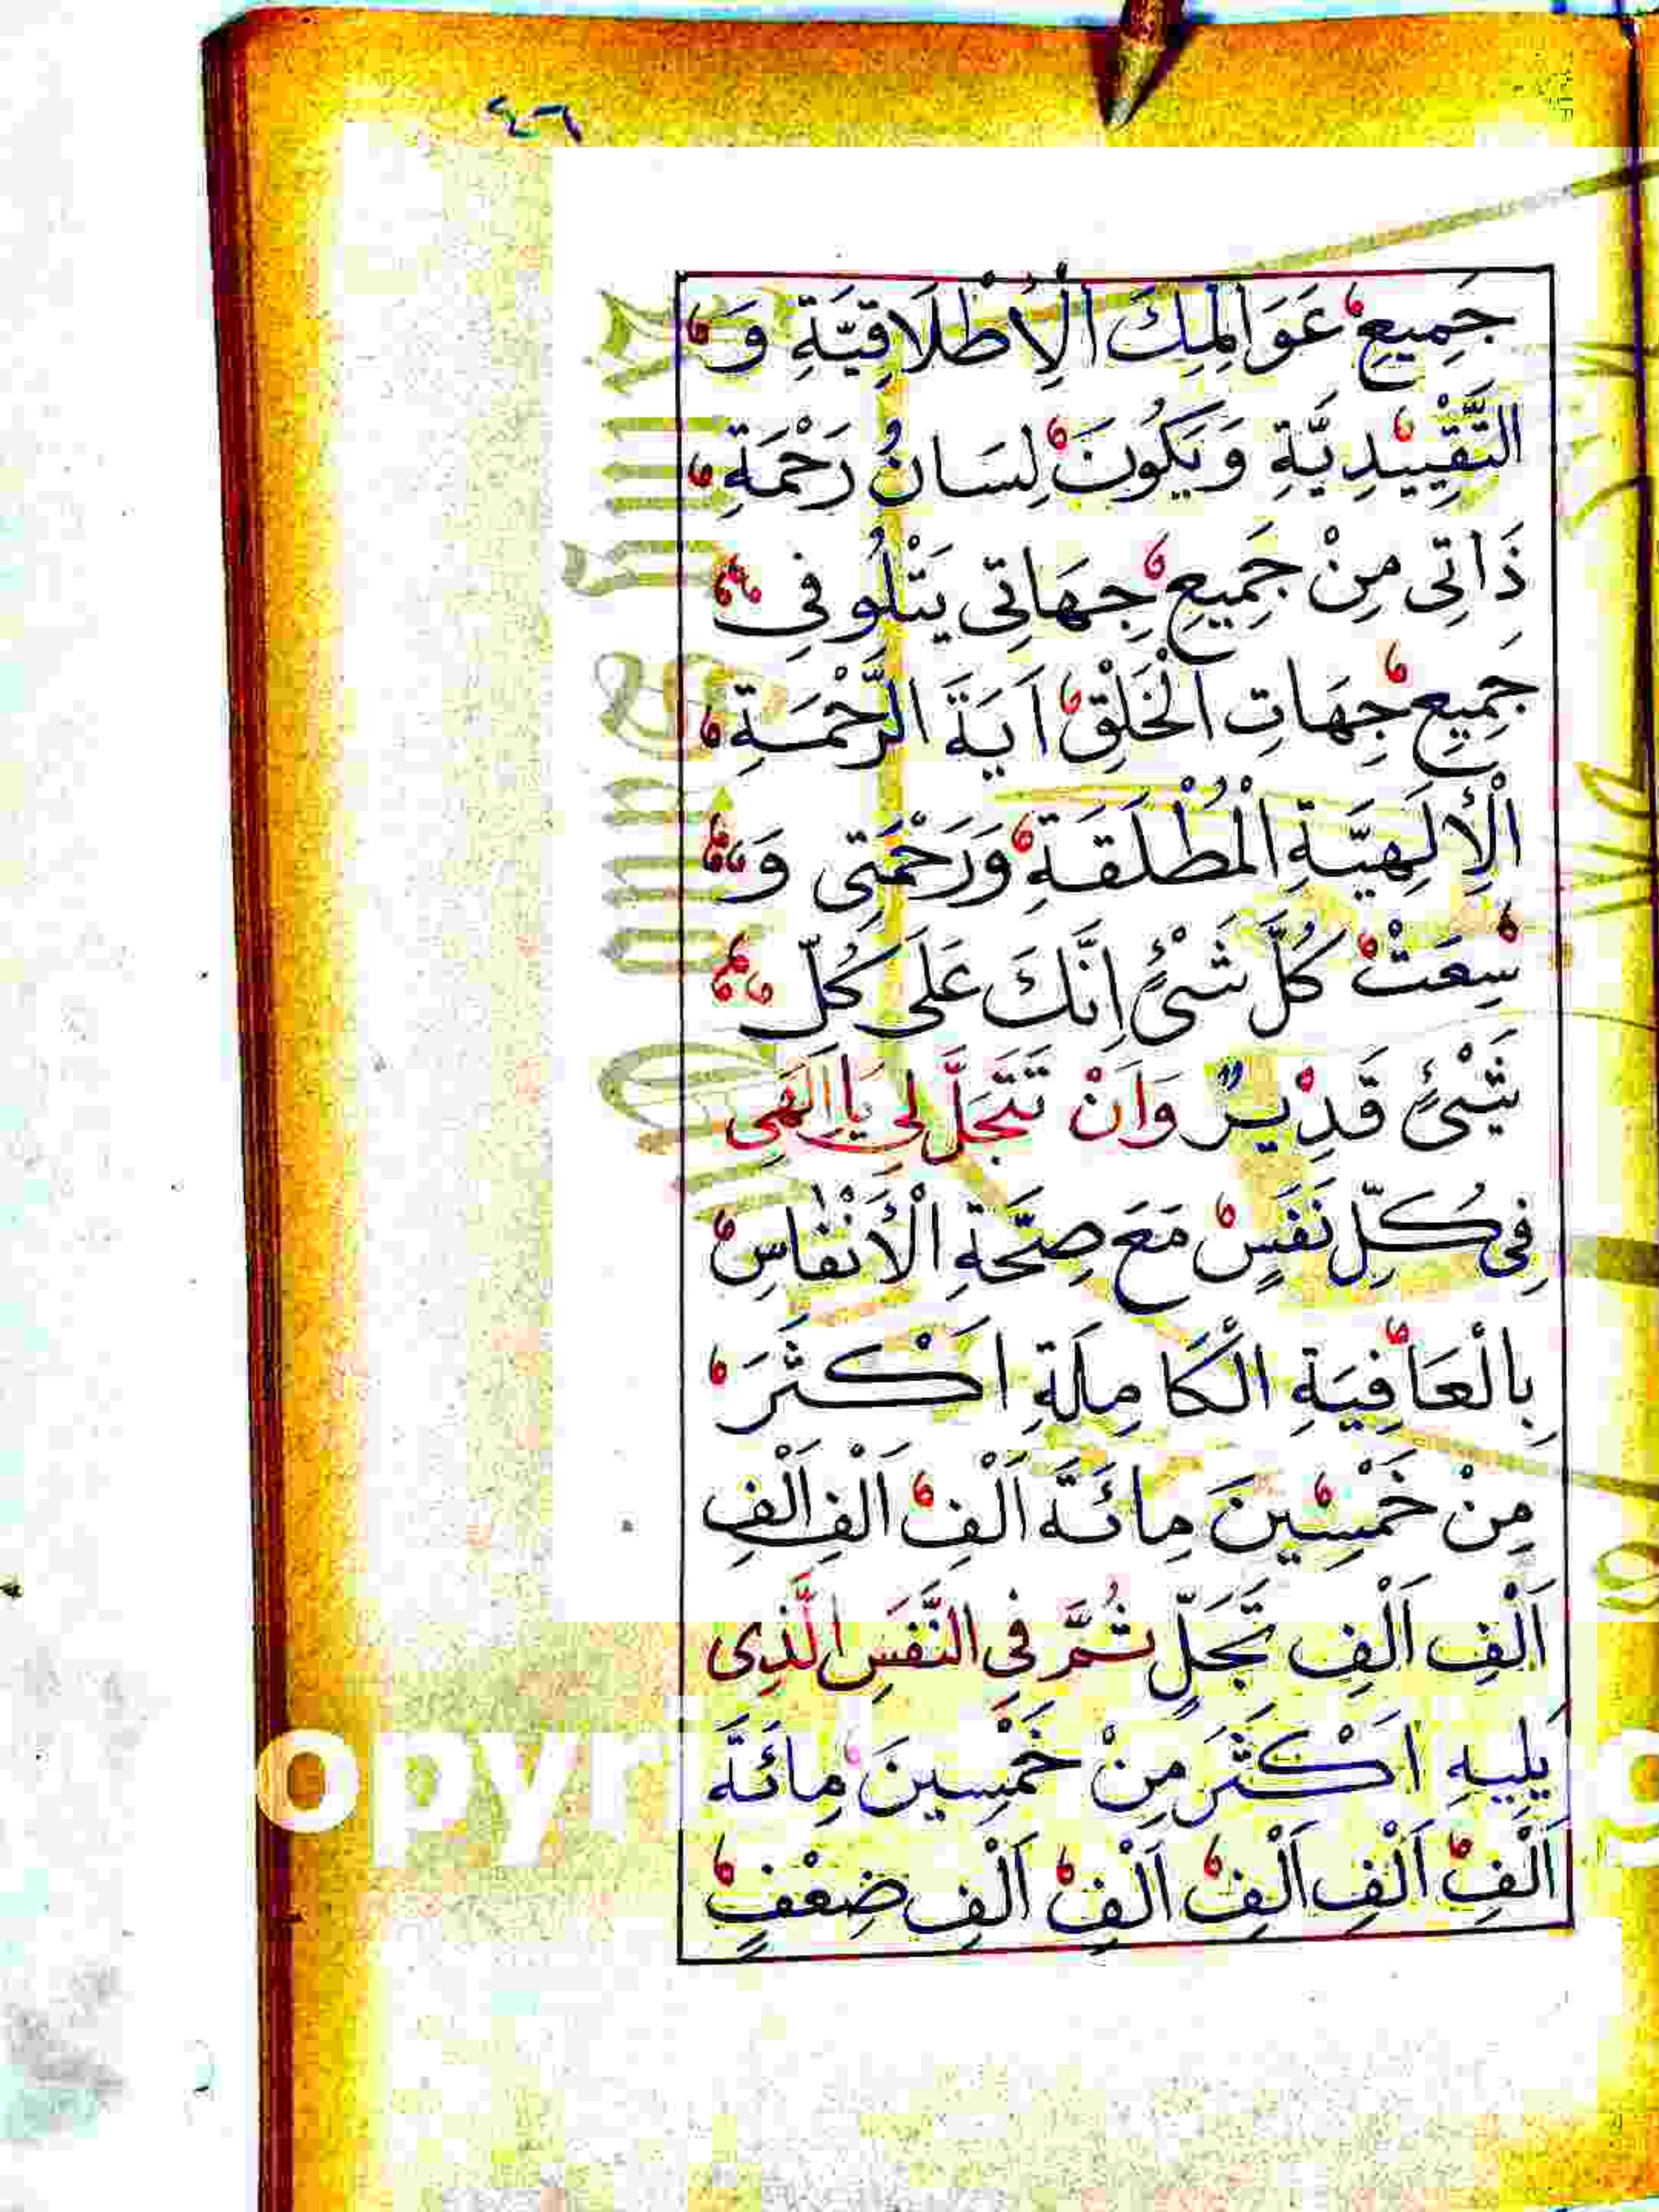 ٤٦
جَمِيعِ عَوَالِمِكَ الْاِطْلَاقِيَّةِ وَ
التَّقْيِيدِيَّةِ وَيَكُونَ لِسَانُ رَحْمَةِ
ذَاتِى مِنْ جَمِيعِ جِهَاتِى يَتْلُو فِى
جَمِيعِ جِهَاتِ الْخَلْقِ اَيَةَ الرَّحْمَةِ
الْاِلَهِيَّةِ الْمُطْلَقَةِ وَرَحْمَتِى وَ
سِعَتْ كُلَّ شَىْءٍ اِنَّكَ عَلَى كُلِّ
شَىْءٍ قَدِيْرٌ وَاَنْ تَتَجَلَّ لِى يَا اِلَهِى
فِى كُلِّ نَفَسٍ مَعَ صِحَّةِ الْاَنْفَاسِ
بِالْعَافِيَةِ الْكَامِلَةِ اَكْثَرَ
مِنْ خَمْسِينَ مِائَةَ اَلْفِ اَلْفِ اَلْفِ
اَلْفِ اَلْفِ تَجَلٍّ ثُمَّ فِى النَّفَسِ الَّذِى
يَلِيهِ اَكْثَرَ مِنْ خَمْسِينَ مِائَةَ
اَلْفِ اَلْفِ اَلْفِ اَلْفِ اَلْفِ ضِعْفٍ
opyri